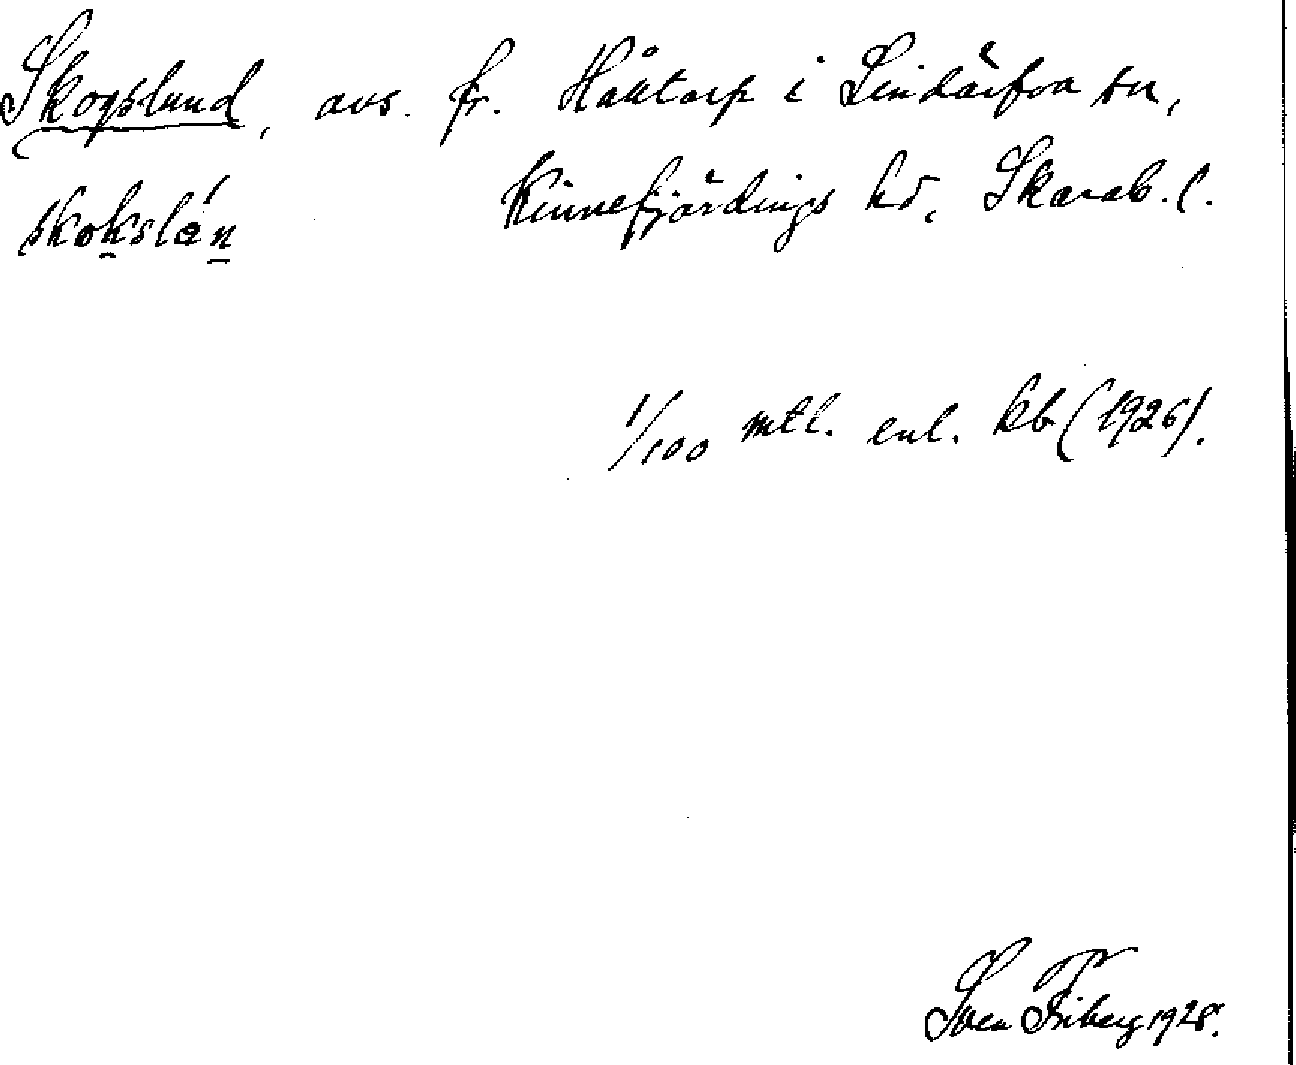 Skogslund, avs. fr. Håltorp i Lindärfva sn,
skokslán Kinnefjärdings hd, Skarab. l.
1/100 mtl. enl. kb (1926).
Sven Friberg 1928.